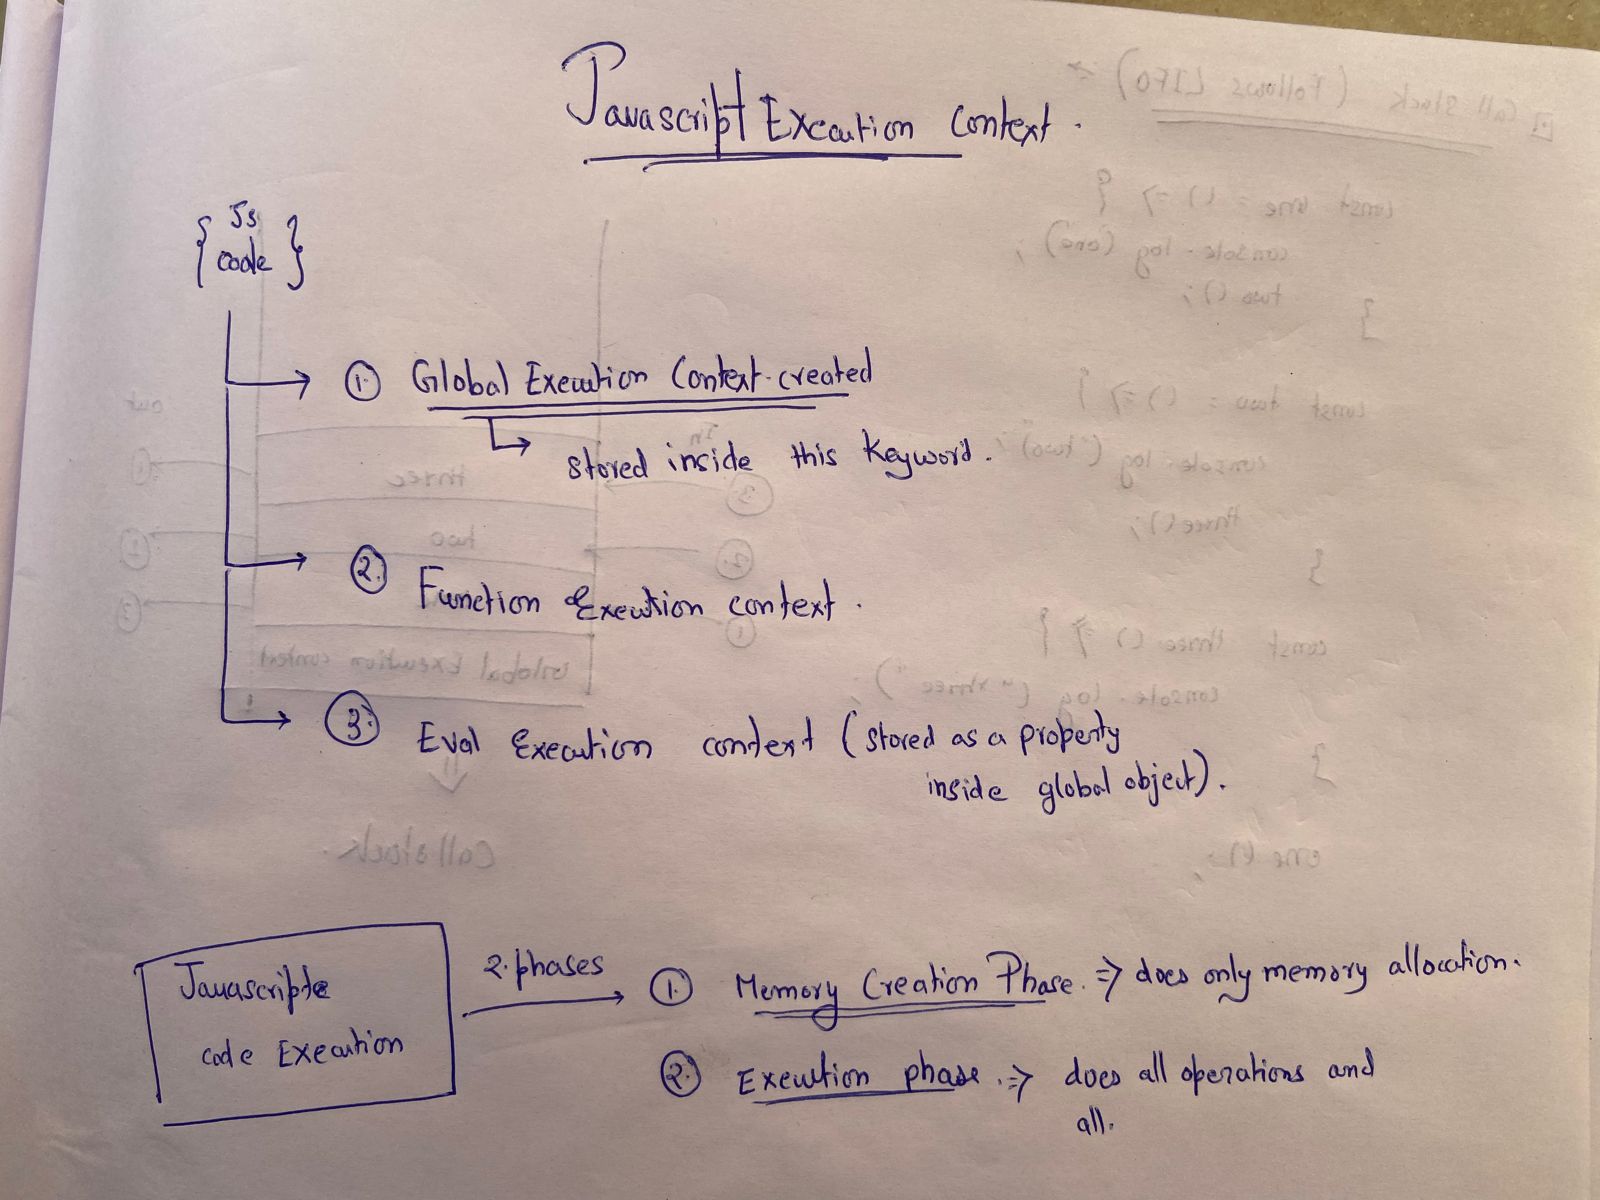 Javascript Execution Context.
{ Js
code }
1. Global Execution Context created
stored inside this keyword.
2. Function Execution context.
3. Eval Execution context (stored as a property
inside global object).
Javascripte
code Execution
2 phases
1. Memory Creation Phase. => does only memory allocation.
2. Execution phase. => does all operations and
all.